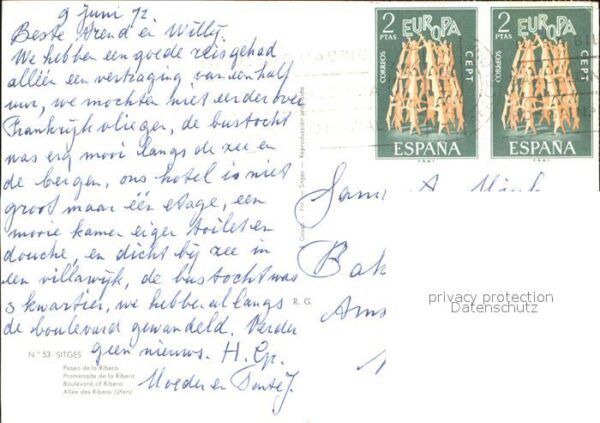 9 juni 72
Beste Arend en Willy.
We hebben een goede reis gehad
alléén een vertraging van een half
uur, we mochten niet eerder over
Frankrijk vliegen, de bustocht
was erg mooi langs de zee en
de bergen, ons hotel is niet
groot maar één etage, een
mooie kamer eigen toilet en
douche, en dicht bij zee in
een villawijk, de bustocht was
3 kwartier, we hebben al langs
de boulevard gewandeld. Verder
geen nieuws. H. Gr.
Moeder en Tante J.
N.º 53 - SITGES
Paseo de la Ribera
Promenade de la Ribera
Boulevard of Ribera
Allee des Ribera (Ufers)
R. G.
Sitges - Reproduction
2
PTAS
EUROPA
CEPT
CORREOS
ESPAÑA
2
PTAS
EUROPA
CEPT
CORREOS
ESPAÑA
Fam. A.
Bak
Ams
privacy protection
Datenschutz